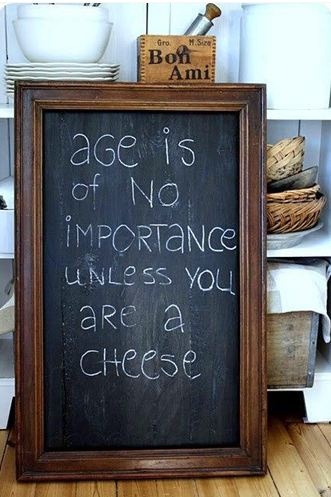 Gro. M.Size
Bon
Ami
age is
of NO
iMPORTANCE
UNLESS YOU
aRe a
CHeeSe